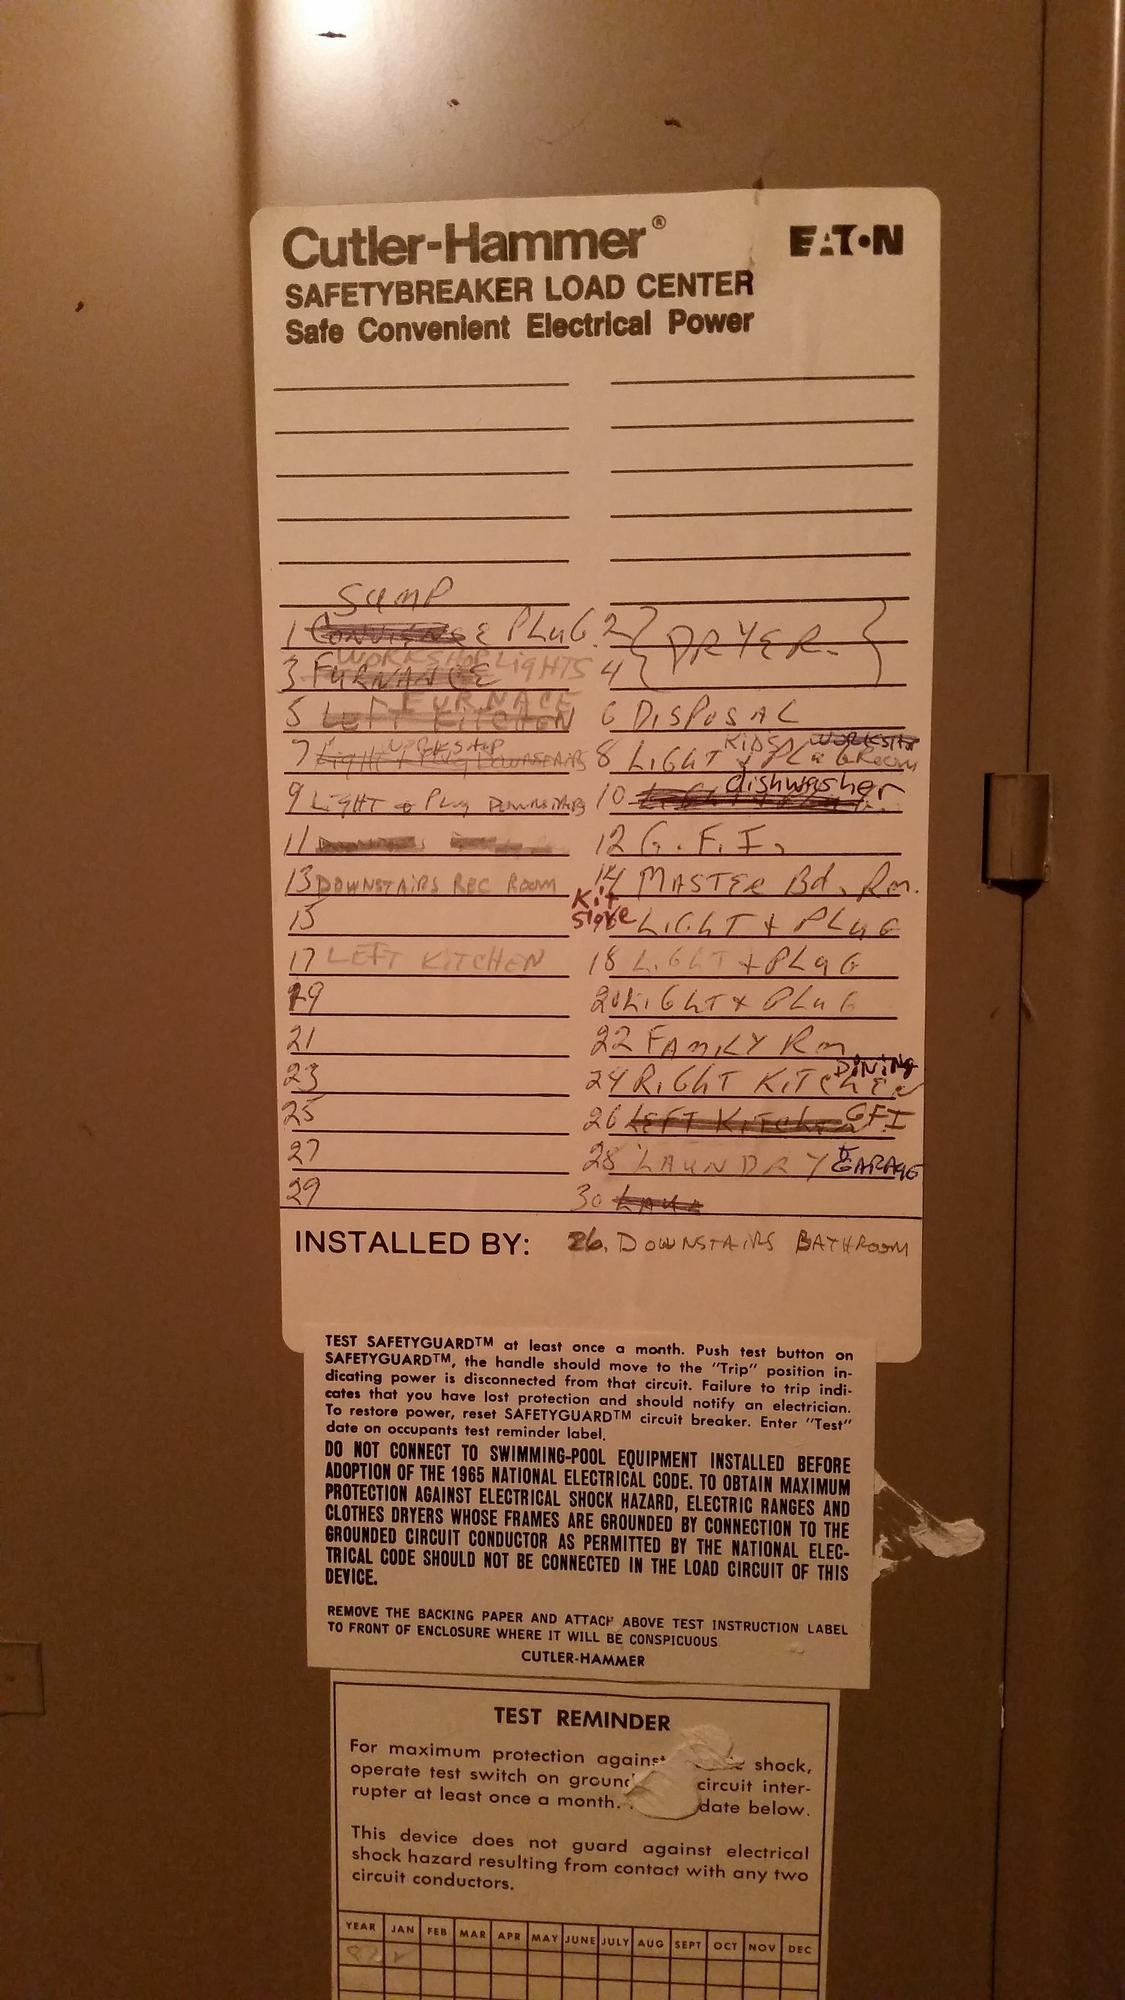 Cutler-Hammer® EAT•N
SAFETYBREAKER LOAD CENTER
Safe Convenient Electrical Power
SUMP
1 CONVIENSE PLUG 2 DRYER
WORKSHOP LIGHTS
3 FURNANCE 4
FURNACE
5 LEFT KITCHEN 6 DISPOSAL
WORKSHOP KIDS WORKSHP
7 LIGHT + PLUG DOWNSTAIRS 8 LIGHT + PLUG ROOM
dishwasher
9 LIGHT + PLUG DOWNSTAIRS 10
11 12 G.F.I.
13 DOWNSTAIRS REC ROOM 14 MASTER Bd. Rm.
Kit
15 Stove LIGHT + PLUG
17 LEFT KITCHEN 18 LIGHT + PLUG
19 20 LIGHT + PLUG
21 22 FAMILY Rm
DINING
23 24 RIGHT KITCHEN
25 26 LEFT KITCHEN GFI
27 28 LAUNDRY & GARAGE
29 30 LAUN
INSTALLED BY: 26. DOWNSTAIRS BATHROOM
TEST SAFETYGUARD™ at least once a month. Push test button on
SAFETYGUARD™, the handle should move to the "Trip" position in-
dicating power is disconnected from that circuit. Failure to trip indi-
cates that you have lost protection and should notify an electrician.
To restore power, reset SAFETYGUARD™ circuit breaker. Enter "Test"
date on occupants test reminder label.
DO NOT CONNECT TO SWIMMING-POOL EQUIPMENT INSTALLED BEFORE
ADOPTION OF THE 1965 NATIONAL ELECTRICAL CODE. TO OBTAIN MAXIMUM
PROTECTION AGAINST ELECTRICAL SHOCK HAZARD, ELECTRIC RANGES AND
CLOTHES DRYERS WHOSE FRAMES ARE GROUNDED BY CONNECTION TO THE
GROUNDED CIRCUIT CONDUCTOR AS PERMITTED BY THE NATIONAL ELEC-
TRICAL CODE SHOULD NOT BE CONNECTED IN THE LOAD CIRCUIT OF THIS
DEVICE.
REMOVE THE BACKING PAPER AND ATTACH ABOVE TEST INSTRUCTION LABEL
TO FRONT OF ENCLOSURE WHERE IT WILL BE CONSPICUOUS
CUTLER-HAMMER
TEST REMINDER
For maximum protection against shock,
operate test switch on ground circuit inter-
rupter at least once a month. date below.
This device does not guard against electrical
shock hazard resulting from contact with any two
circuit conductors.
YEAR JAN FEB MAR APR MAY JUNE JULY AUG SEPT OCT NOV DEC